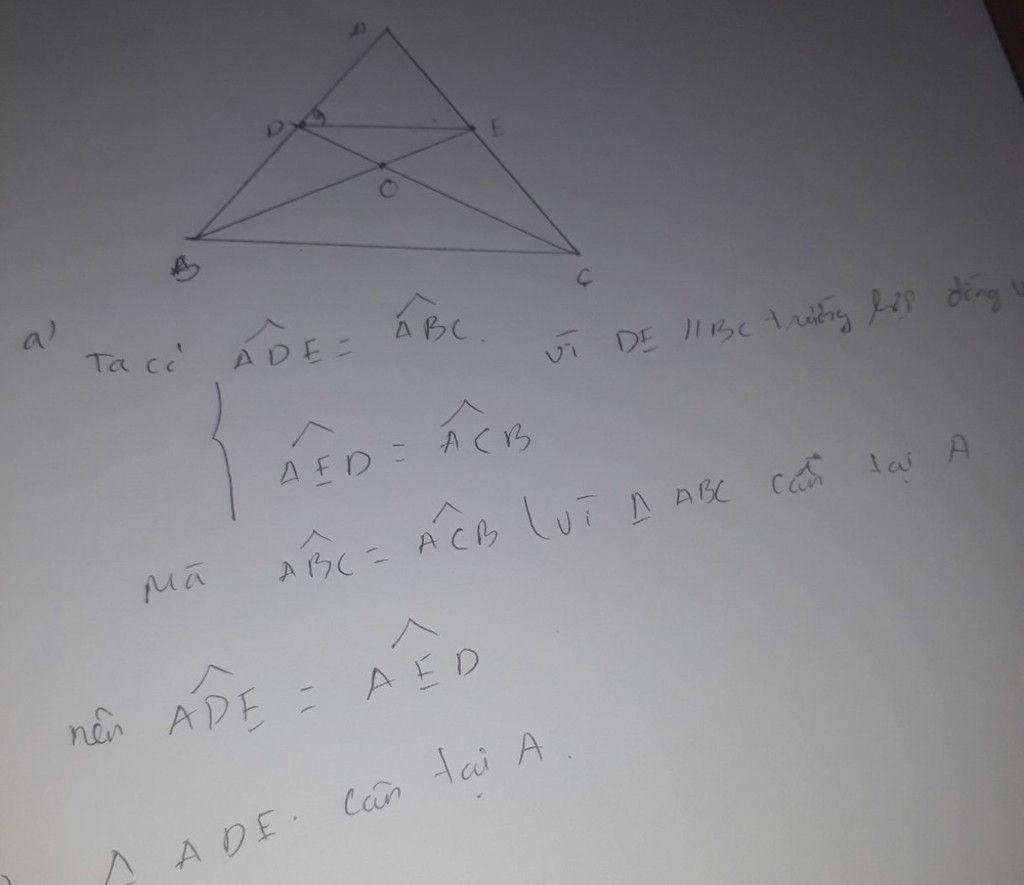 A
D
E
O
B
C
a)
Ta có ADE = ABC. vì DE // BC trường hợp đồng
AED = ACB
Mà ABC = ACB (vì Δ ABC cân tại A
nên ADE = AED
Δ ADE. cân tại A.